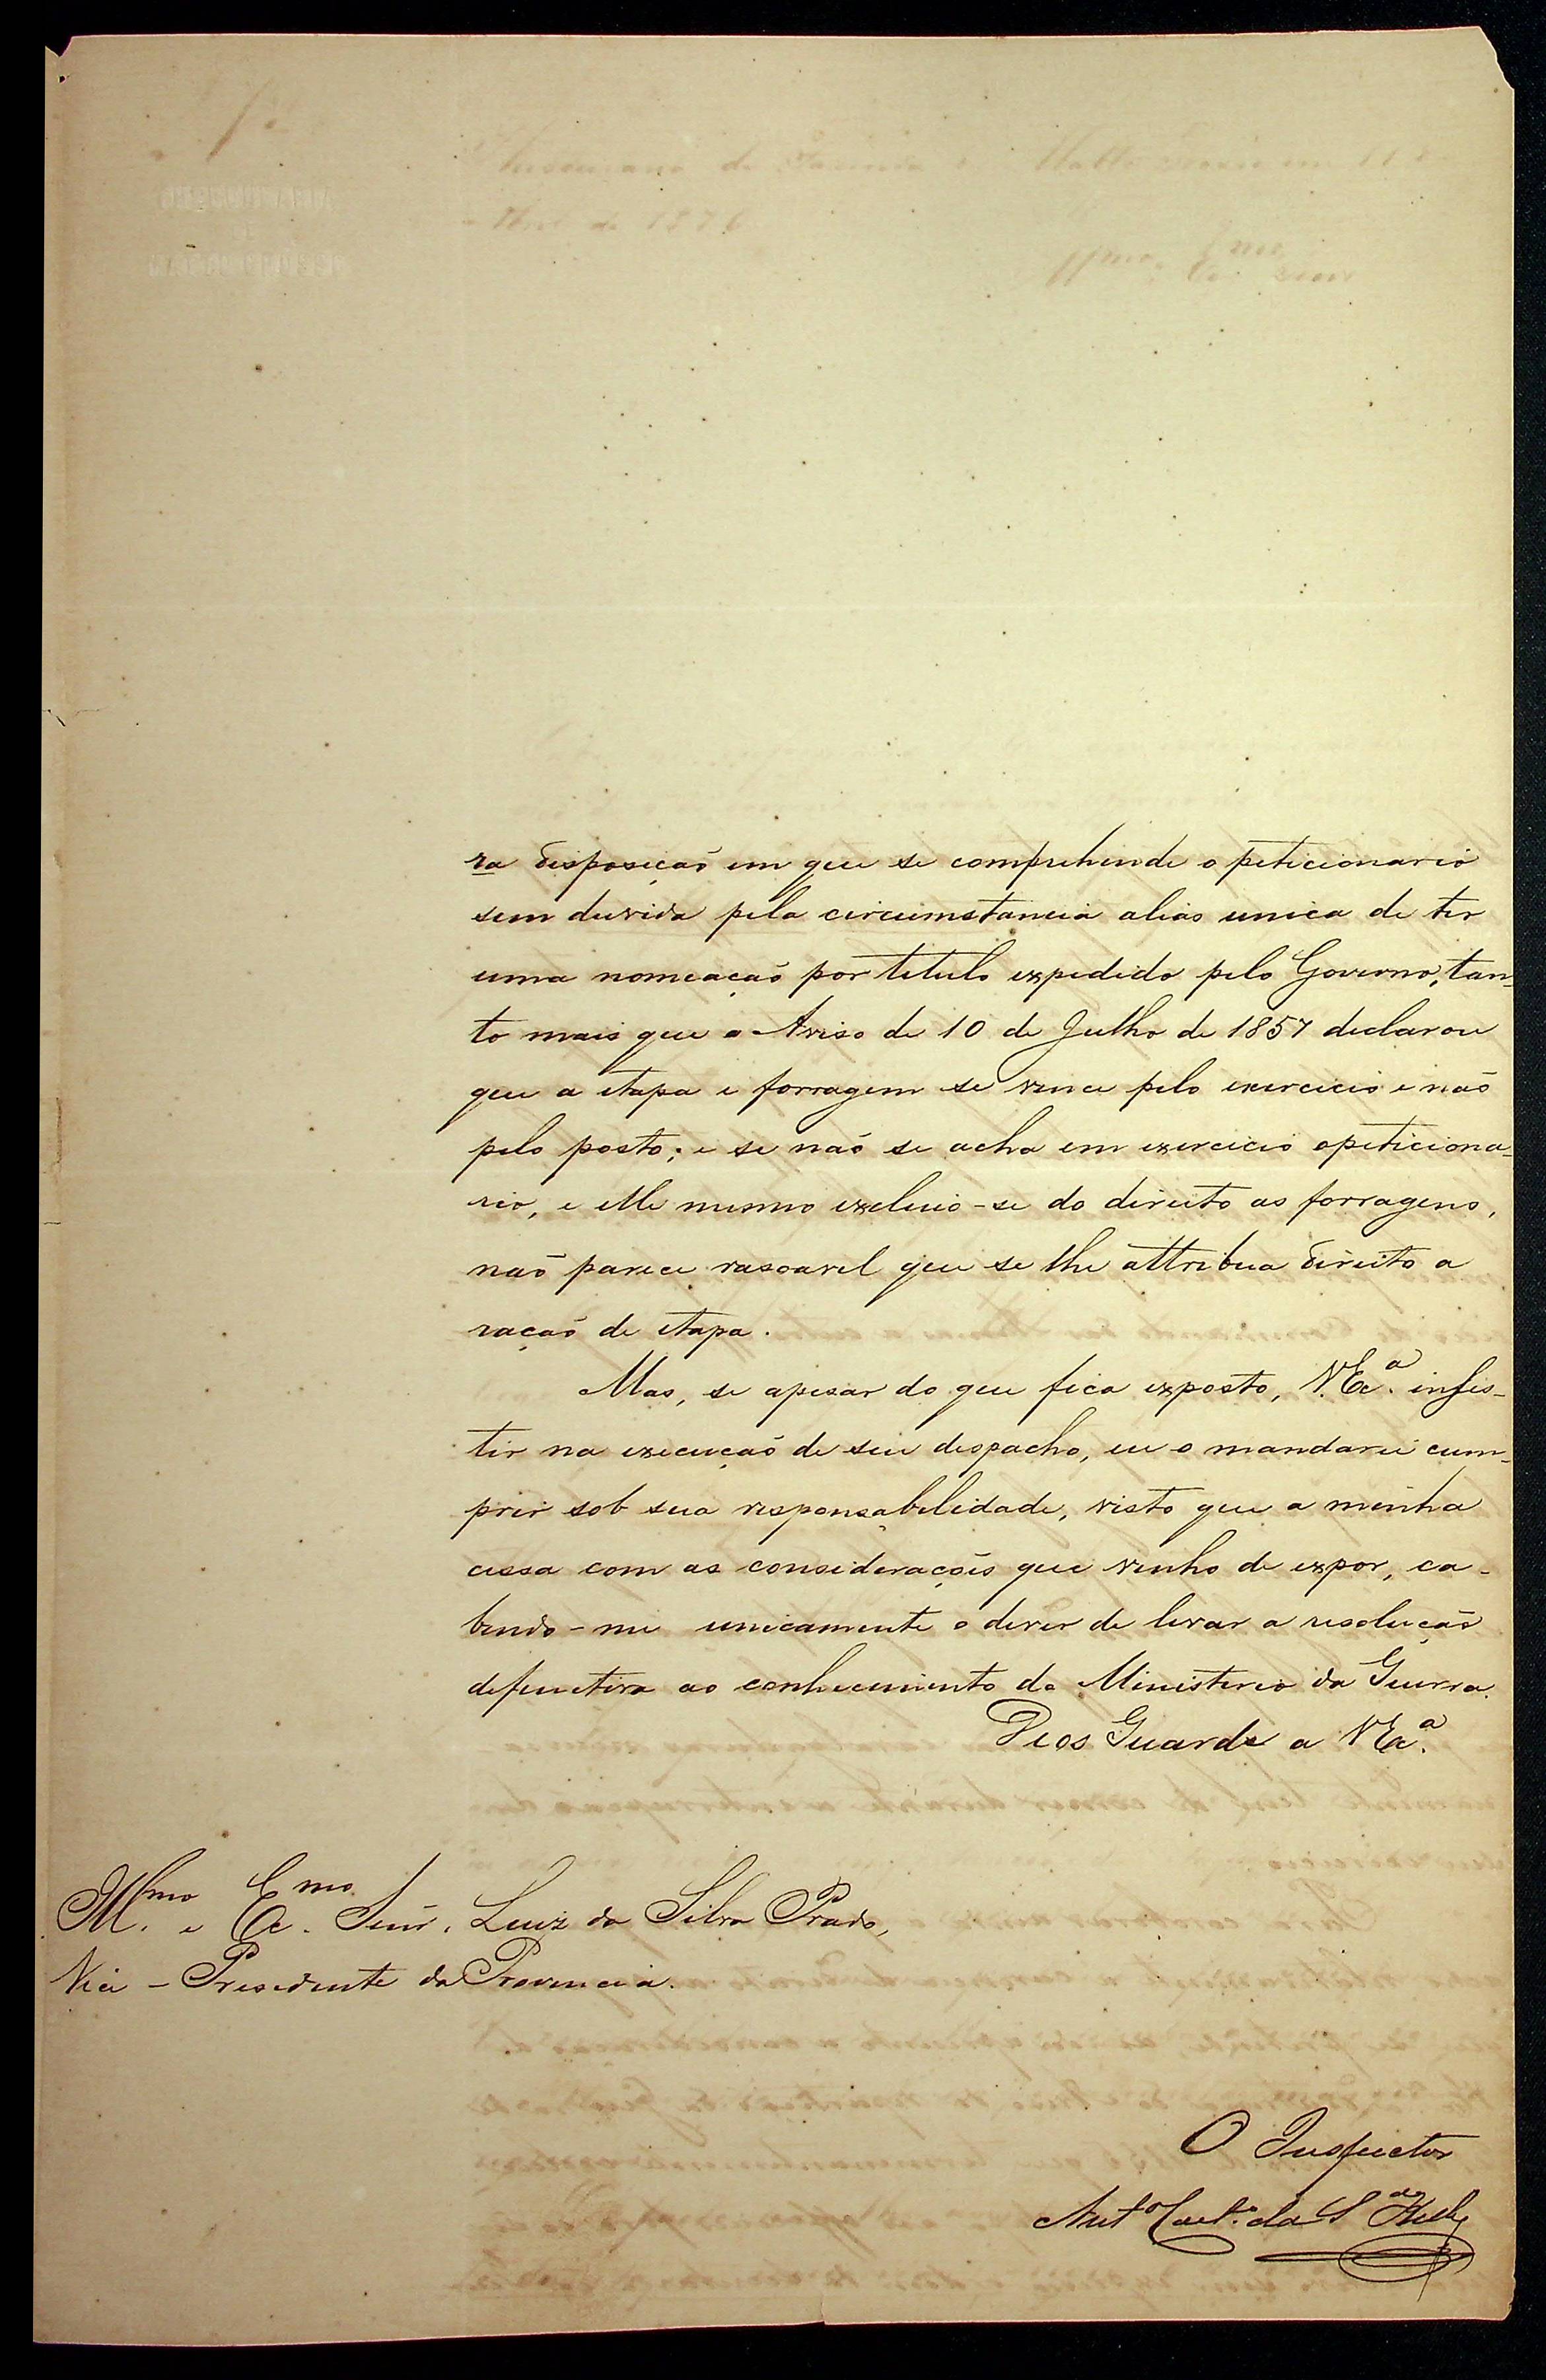 ra disposição em que se comprehende o peticionario
sem duvida pela circumstancia alias unica de ter
uma nomeação por titulo expedido pelo Governo, tan-
to mais que o Aviso de 10 de Julho de 1857 declarou
que a etapa e forragem se vence pelo exercicio e não
pelo posto; e se não se acha em exercicio o peticiona-
rio, e elle mesmo excluio-se do direito as forragens,
não parece rasoavel que se lhe attribua direito a
ração de etapa.
Mas, se apesar do que fica exposto, V. Exc.ª insis-
tir na execução de seu despacho, eu o mandarei cum-
prir sob sua responsabilidade, visto que a minha
cessa com as considerações que venho de expor, ca-
bendo-me unicamente o dever de levar a resolução
definitiva ao conhecimento do Ministerio da Guerra.
Deos Guarde a V Exc.ª
Ill.mo e Exc.mo Senr. Luiz da Silva Prado,
Vice-Presidente da Provincia.
O Inspector
Ant.o Caet.o da S.a